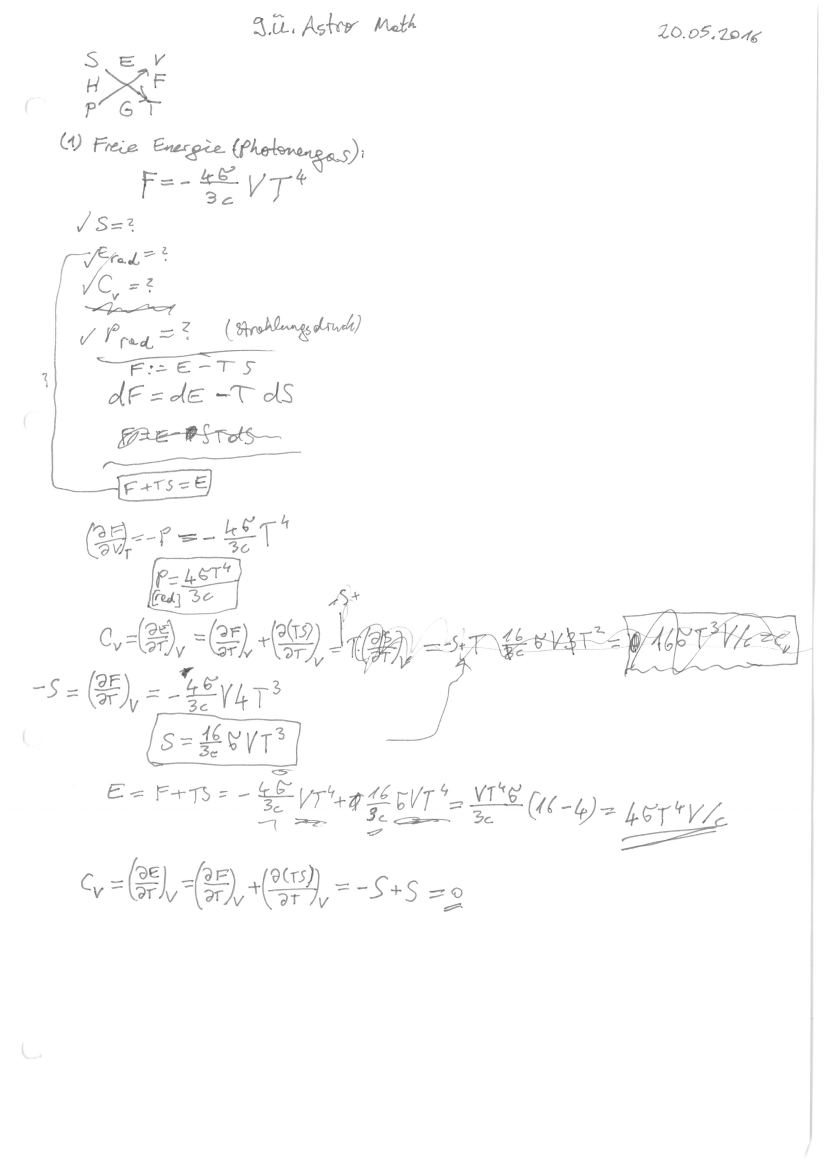 9.ü. Astro Math
20.05.2016
S E V
H F
P G T
(1) Freie Energie (Photonengas):
F = - 4σ/3c V T^4
✓ S = ?
✓ E_rad = ?
✓ C_v = ?
✓ P_rad = ? (Strahlungsdruck)
F := E - T S
?
dF = dE - T dS
F + TS = E
(∂F/∂V)_T = -P = - 4σ/3c T^4
P = 4σT^4/3c
[rad]
-S+
C_v = (∂E/∂T)_V = (∂F/∂T)_V + (∂(TS)/∂T)_V = T·(∂S/∂T)_V = -S+T 16/3c σ V 3T^2 = 16σT^3 V/c = C_v
-S = (∂F/∂T)_V = - 4σ/3c V 4 T^3
S = 16/3c σ V T^3
E = F + TS = - 4σ/3c VT^4 + 16/3c σVT^4 = VT^4σ/3c (16-4) = 4σT^4V/c
C_V = (∂E/∂T)_V = (∂F/∂T)_V + (∂(TS)/∂T)_V = -S + S = 0